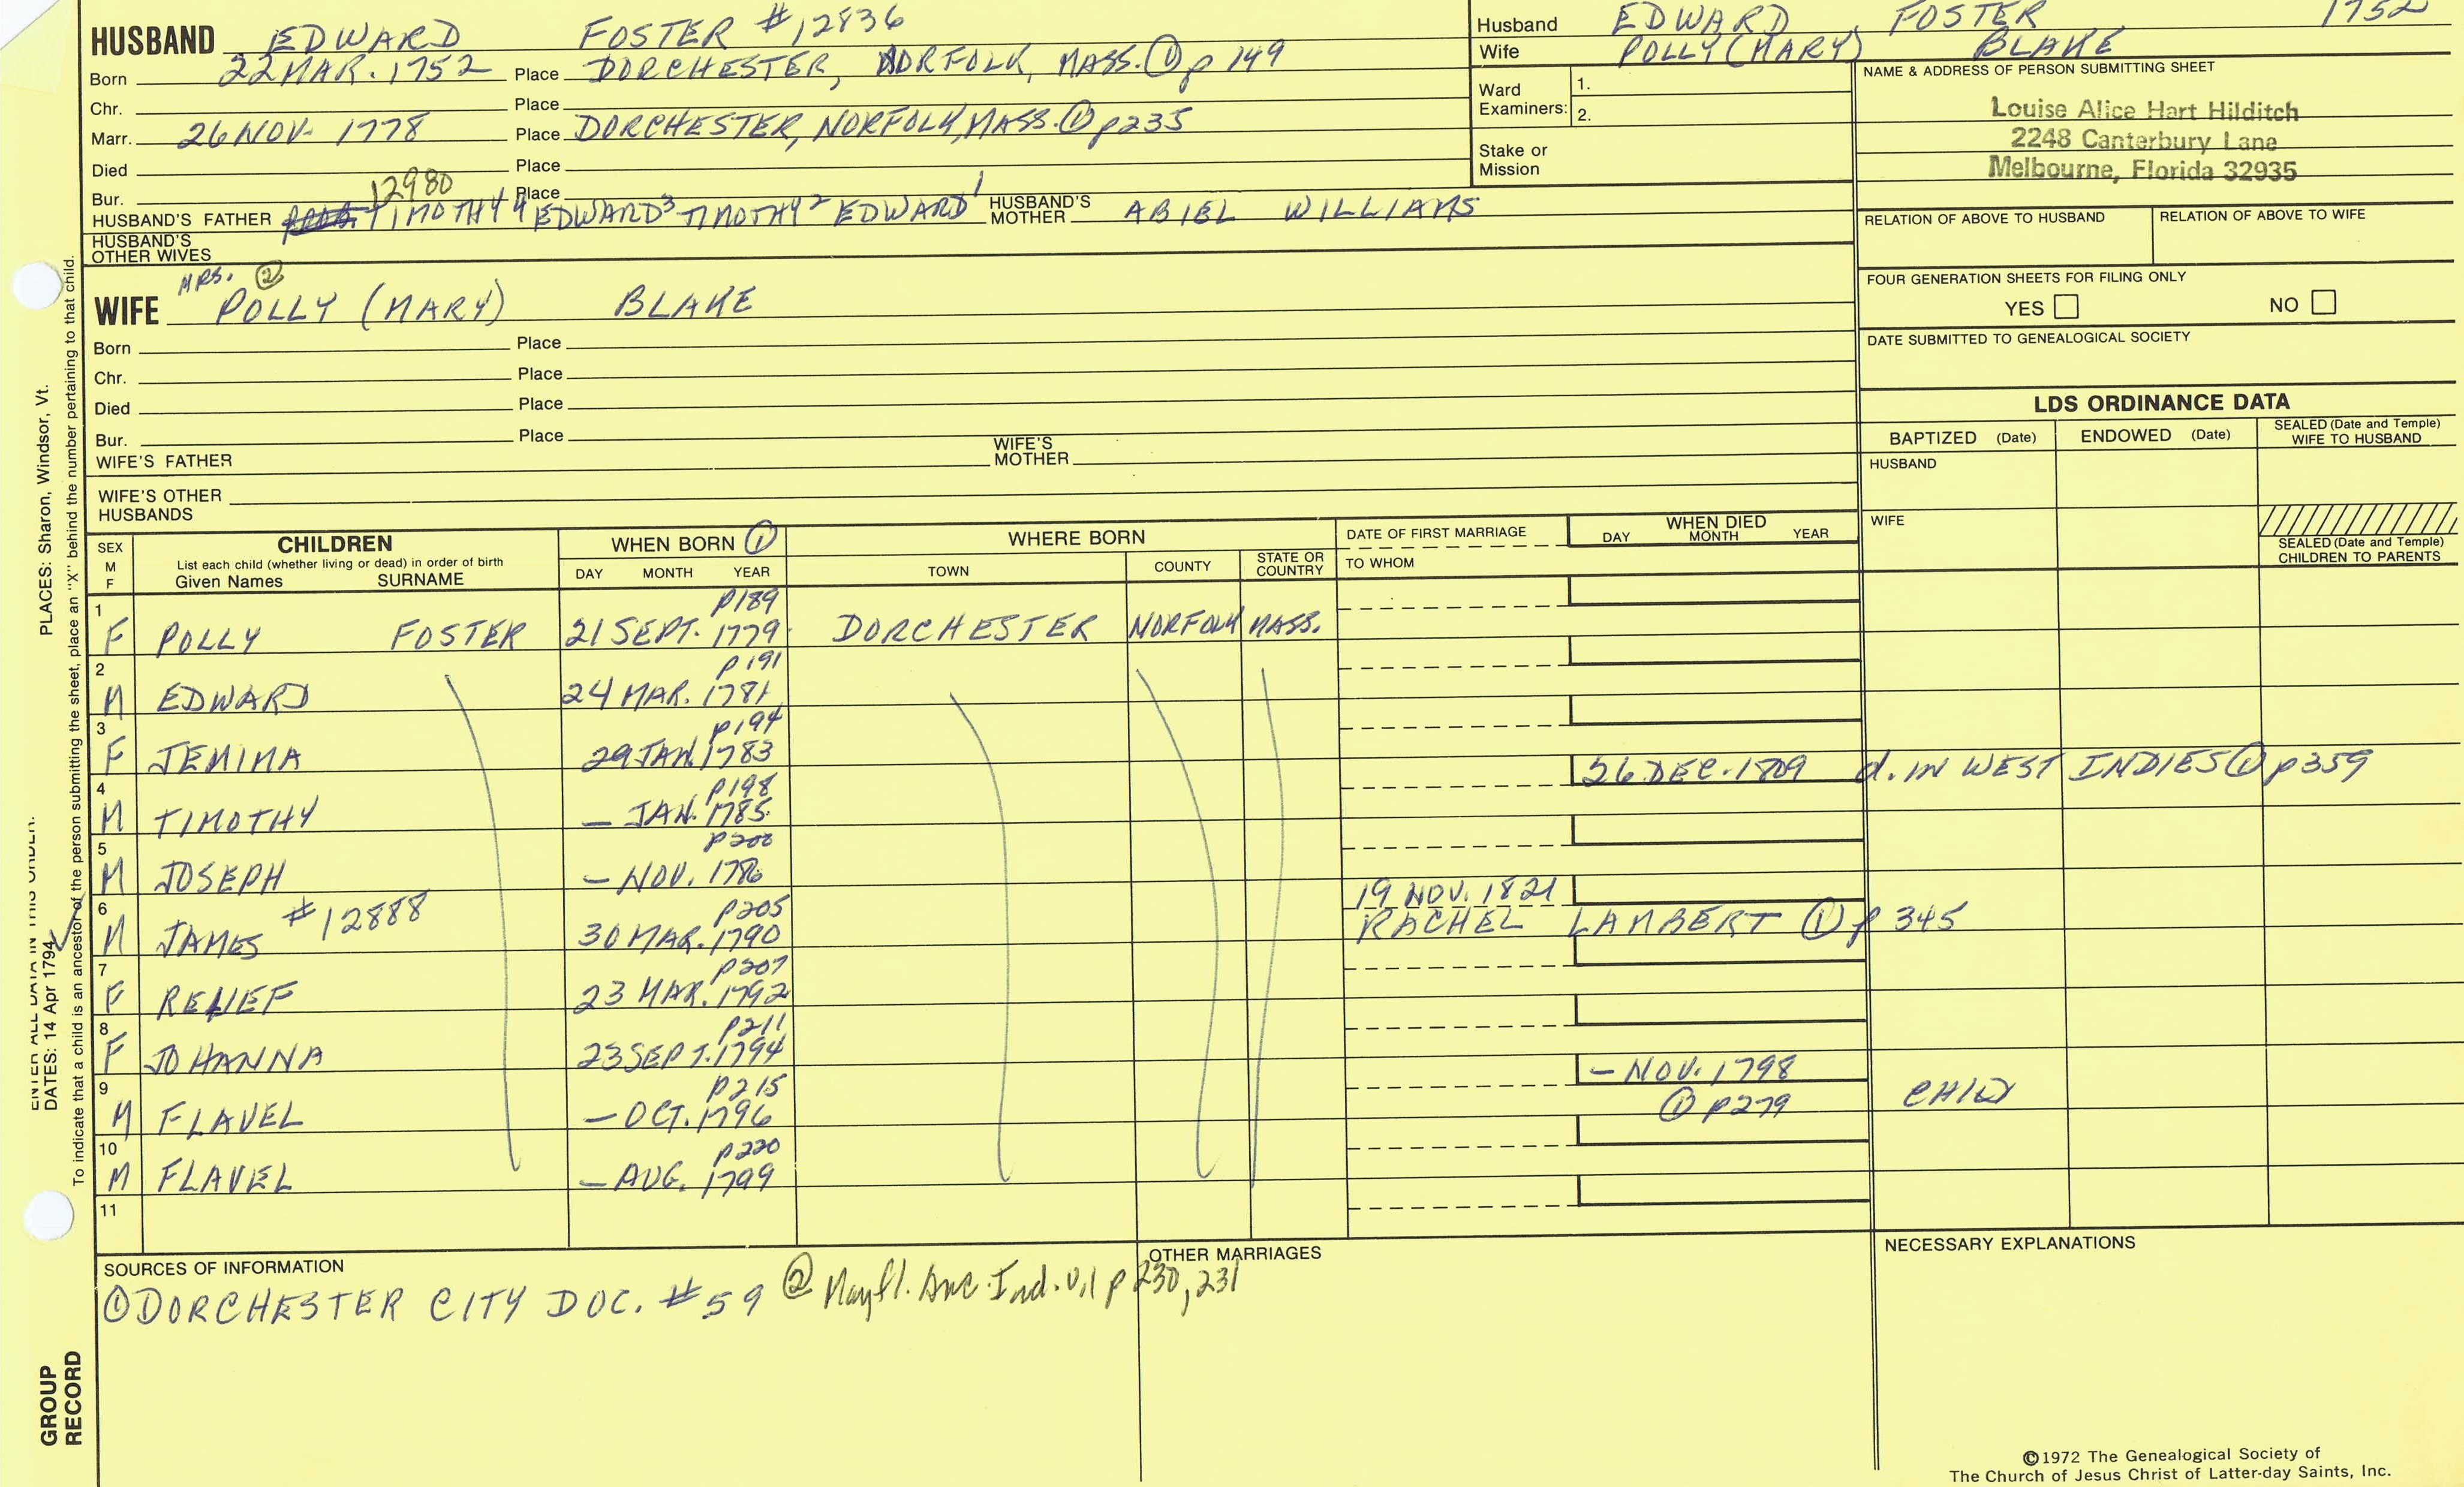 HUSBAND EDWARD FOSTER #12836
Born 22 MAR. 1752 Place DORCHESTER, NORFOLK, MASS. ① p 149
Chr. Place
Marr. 26 NOV. 1778 Place DORCHESTER, NORFOLK, MASS. ① p235
Died Place
Bur. Place
12980
HUSBAND'S FATHER TIMOTHY 4 EDWARD 3 TIMOTHY 2 EDWARD 1 HUSBAND'S MOTHER ABIEL WILLIAMS
HUSBAND'S OTHER WIVES
Husband EDWARD FOSTER 1752
Wife POLLY (MARY) BLAKE
Ward Examiners: 1.
2.
Stake or Mission
NAME & ADDRESS OF PERSON SUBMITTING SHEET
Louise Alice Hart Hilditch
2248 Canterbury Lane
Melbourne, Florida 32935
RELATION OF ABOVE TO HUSBAND RELATION OF ABOVE TO WIFE
FOUR GENERATION SHEETS FOR FILING ONLY
YES NO
DATE SUBMITTED TO GENEALOGICAL SOCIETY
MRS. ②
WIFE POLLY (MARY) BLAKE
Born Place
Chr. Place
Died Place
Bur. Place
WIFE'S FATHER WIFE'S MOTHER
WIFE'S OTHER HUSBANDS
LDS ORDINANCE DATA
BAPTIZED (Date) ENDOWED (Date) SEALED (Date and Temple) WIFE TO HUSBAND
HUSBAND
WIFE
SEALED (Date and Temple) CHILDREN TO PARENTS
SEX M F
CHILDREN
List each child (whether living or dead) in order of birth
Given Names SURNAME
WHEN BORN ①
DAY MONTH YEAR
WHERE BORN
TOWN COUNTY STATE OR COUNTRY
DATE OF FIRST MARRIAGE
TO WHOM
WHEN DIED
DAY MONTH YEAR
p189
1 F POLLY FOSTER 21 SEPT. 1779 DORCHESTER NORFOLK MASS.
p191
2 M EDWARD 24 MAR. 1781
p194
3 F JEMIMA 29 JAN. 1783
p198
4 M TIMOTHY – JAN. 1785 26 DEC. 1809 d. IN WEST INDIES ① p359
p200
5 M JOSEPH – NOV. 1786
p205
6 M JAMES #12888 30 MAR. 1790 19 NOV. 1821
RACHEL LAMBERT ① p 345
p207
7 F RELIEF 23 MAR. 1792
p211
8 F JOHANNA 23 SEPT. 1794
p215
9 M FLAVEL – OCT. 1796 – NOV. 1798
① p279 CHILD
p220
10 M FLAVEL – AUG. 1799
11
SOURCES OF INFORMATION
① DORCHESTER CITY DOC. #59 ② Mayfl. Anc. Ind. v.1 p 230, 231
OTHER MARRIAGES
NECESSARY EXPLANATIONS
©1972 The Genealogical Society of
The Church of Jesus Christ of Latter-day Saints, Inc.
PLACES: Sharon, Windsor, Vt.
ENTER ALL DATA IN THIS ORDER:
DATES: 14 Apr 1794
To indicate that a child is an ancestor of the person submitting the sheet, place an "X" behind the number pertaining to that child.
GROUP
RECORD